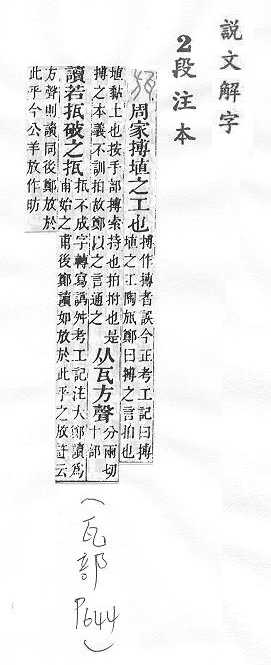 説文解字
2段注本
周家搏埴之工也
搏作摶者誤今正考工記曰搏
埴之工陶瓬鄭曰搏之言拍也
埴黏土也按手部搏索持也拍拊也是
搏之本義不訓拍故鄭以之言通之
从瓦方聲
分兩切
十部
讀若抵破之抵
抵不成字轉寫譌舛考工記注大鄭讀爲
甫始之甫後鄭讀如放於此乎之放許云
方聲則讀同後鄭放於
此乎今公羊放作昉
（瓦部P644）